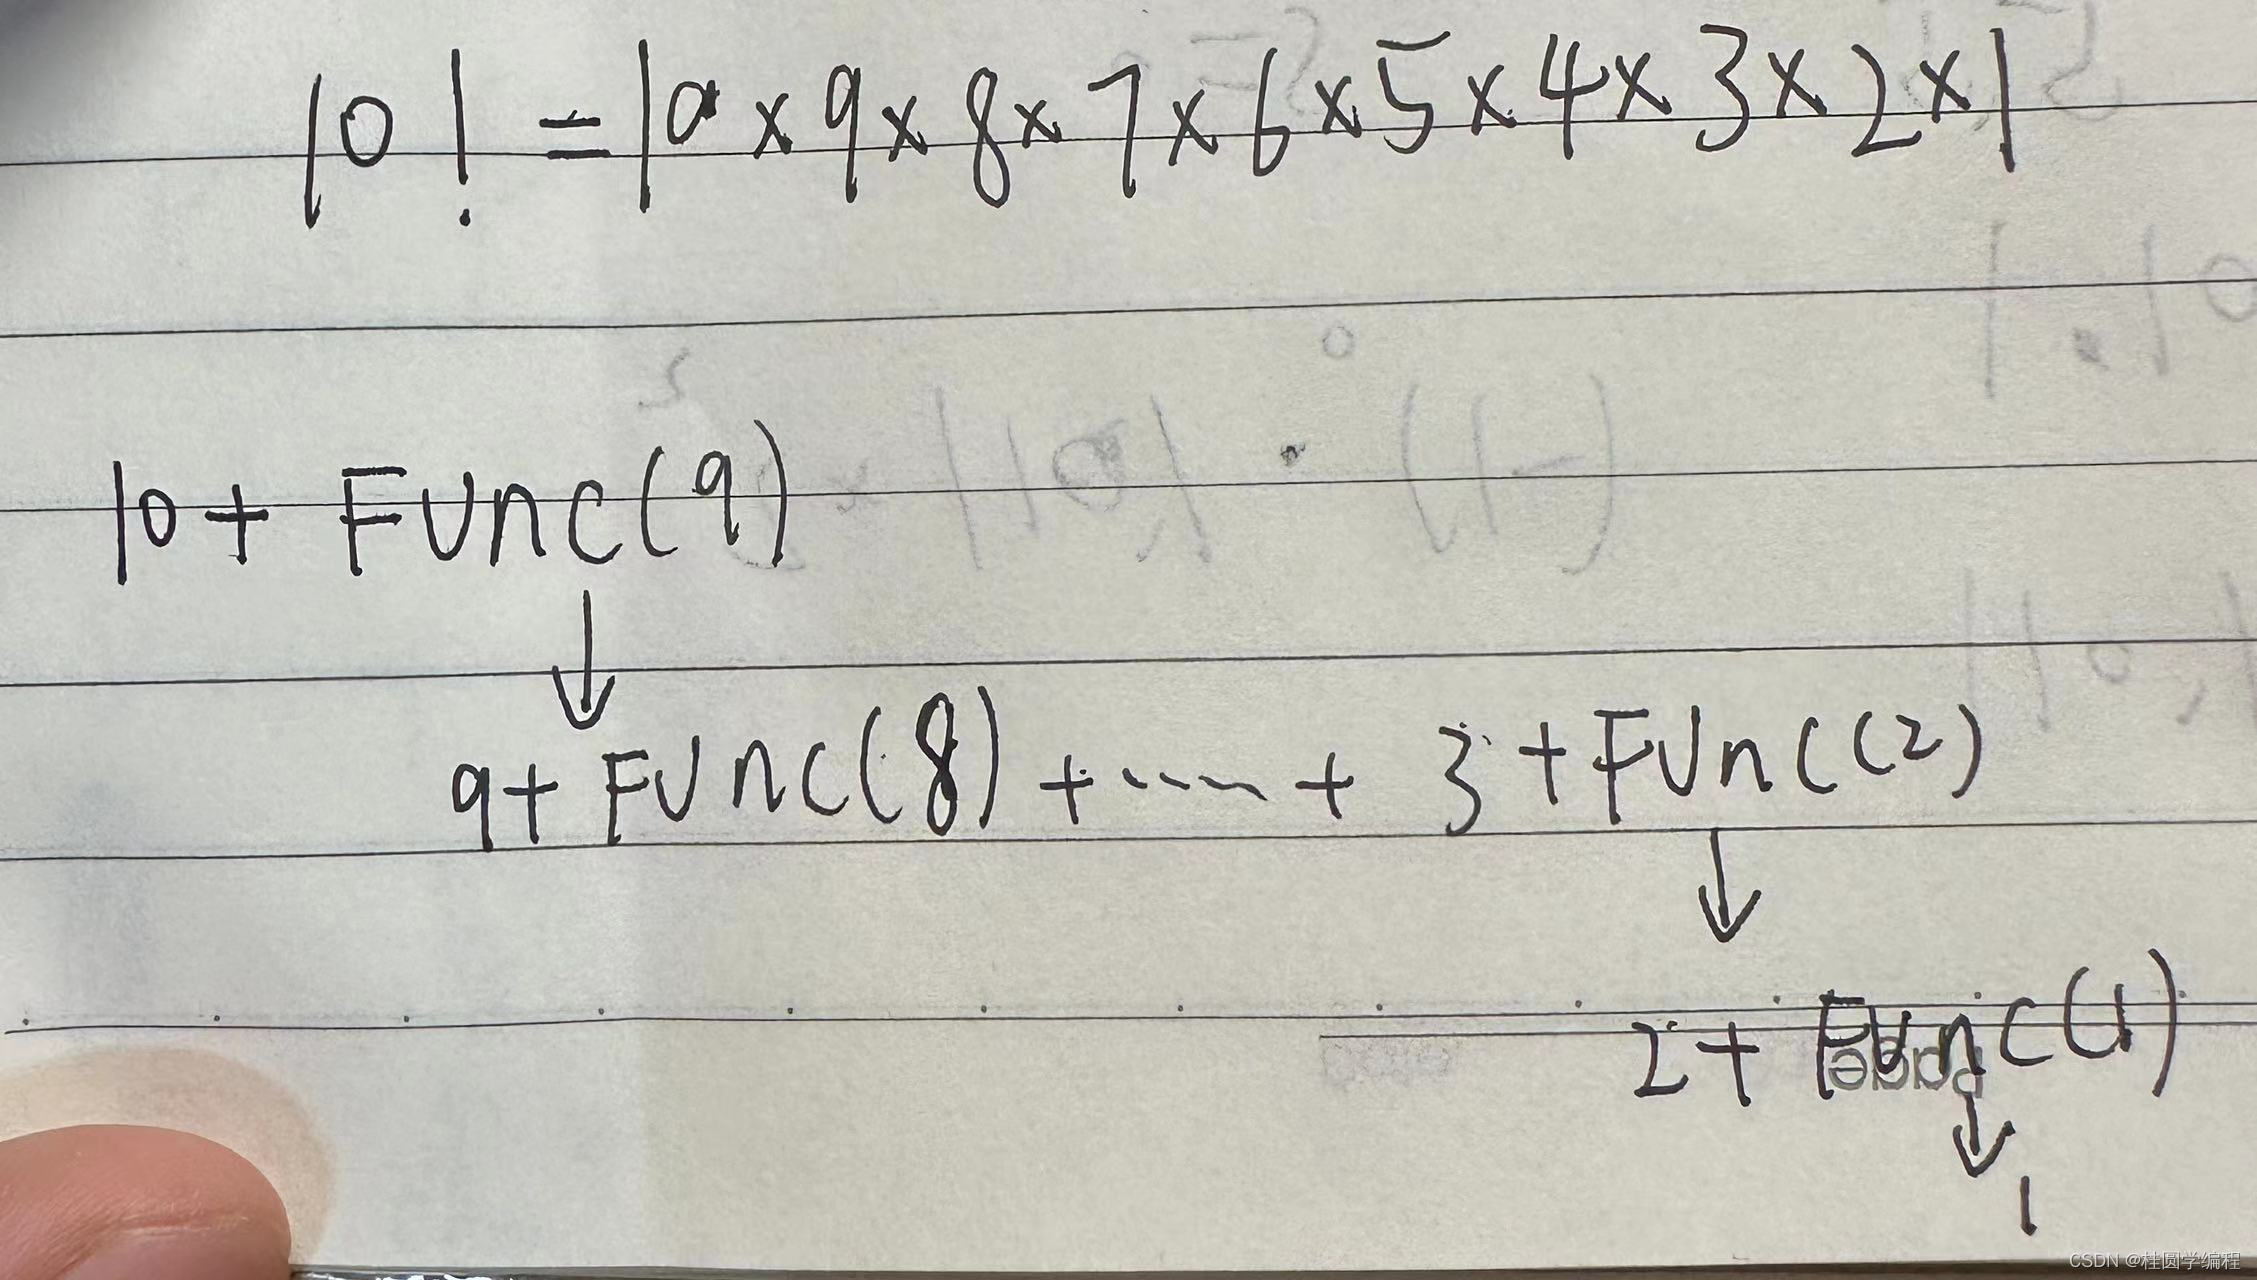 10! = 10×9×8×7×6×5×4×3×2×1
10+ Func(9)
↓
9+ Func(8) +......+ 3 +Func(2)
↓
2+ Func(1)
↓
1
CSDN @桂圆学编程